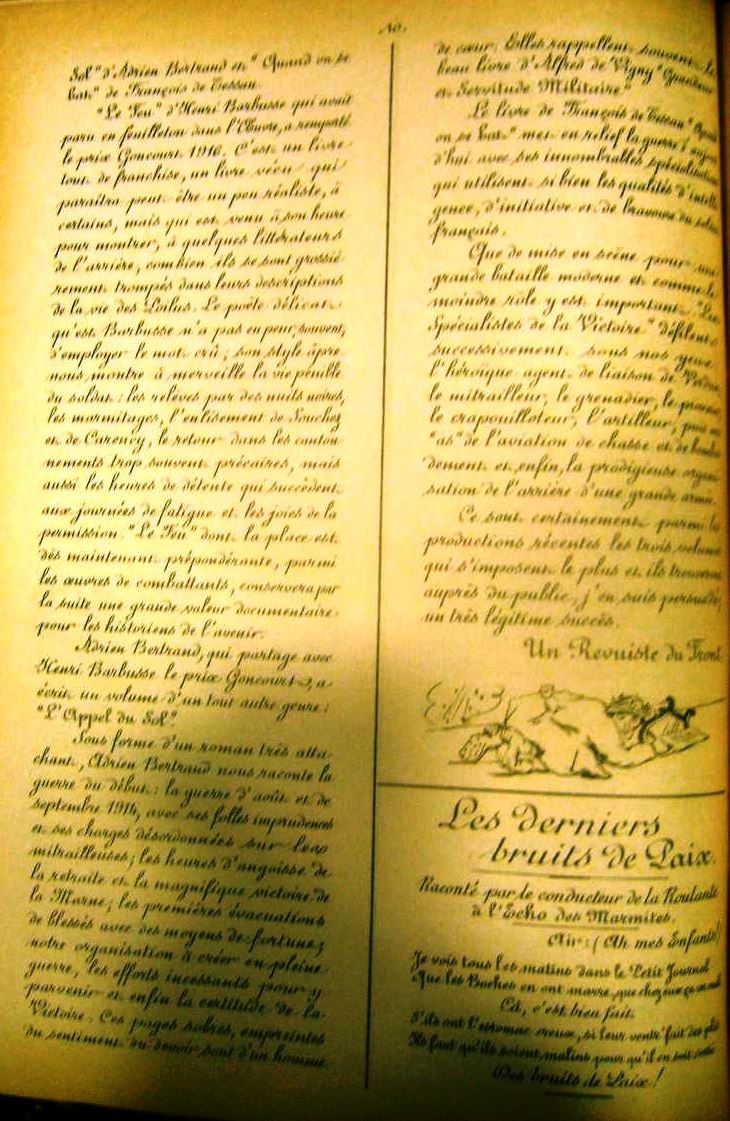 10.
Sol" d'Adrien Bertrand et "Quand on se
bat" de François de Tessan.
"Le Feu" d'Henri Barbusse qui avait
paru en feuilleton dans l'Œuvre, a remporté
le prix Goncourt 1916. C'est un livre
tout de franchise, un livre vécu qui
paraîtra peut être un peu réaliste, à
certains, mais qui est venu à son heure
pour montrer, à quelques littérateurs
de l'arrière, combien ils se sont grossiè-
rement trompés dans leurs descriptions
de la vie des Poilus. Le poète délicat
qu'est Barbusse n'a pas eu peur, souvent,
d'employer le mot crû ; son style âpre
nous montre à merveille la vie pénible
du soldat : les relèves par des nuits noires,
les marmitages, l'enlisement de Souchez
et de Carency, le retour dans les canton-
nements trop souvent précaires, mais
aussi les heures de détente qui succèdent
aux journées de fatigue et les joies de la
permission. "Le Feu" dont la place est
dès maintenant prépondérante, parmi
les œuvres de combattants, conservera par
la suite une grande valeur documentaire
pour les historiens de l'avenir.
Adrien Bertrand, qui partage avec
Henri Barbusse le prix Goncourt, a
écrit un volume d'un tout autre genre :
"L'Appel du Sol".
Sous forme d'un roman très atta-
chant, Adrien Bertrand nous raconte la
guerre du début : la guerre d'août et de
septembre 1914, avec ses folles imprudences
et ses charges désordonnées sur les
mitrailleuses ; les heures d'angoisse de
la retraite et la magnifique victoire de
la Marne ; les premières évacuations
de blessés avec des moyens de fortune ;
notre organisation à créer en pleine
guerre, les efforts incessants pour y
parvenir et enfin la certitude de la
Victoire. Ces pages sobres, empreintes
du sentiment du devoir sont d'un homme
de cœur. Elles rappellent souvent le
beau livre d'Alfred de Vigny "Grandeur
et Servitude Militaire"
Le livre de François de Tessan "Quand
on se bat" met en relief la guerre d'aujour-
d'hui avec ses innombrables spécialisations
qui utilisent si bien les qualités d'intelli-
gence, d'initiative et de bravoure du soldat
français.
Que de mise en scène pour une
grande bataille moderne et comme le
moindre rôle y est important. "Les
Spécialistes de la Victoire" défilent
successivement sous nos yeux.
l'héroïque agent de liaison de Verdun,
le mitrailleur, le grenadier, le
le crapouilloteur, l'artilleur, puis
"as" de l'aviation de chasse et de bombar-
dement et enfin, la prodigieuse organi-
sation de l'arrière d'une grande armée.
Ce sont certainement parmi les
productions récentes les trois volumes
qui s'imposent le plus et ils trouveront
auprès du public, j'en suis persuadé,
un très légitime succès.
Un Revuiste du Front
Les derniers
bruits de Paix.
Raconté par le conducteur de la Roulante
à l'Echo des Marmites.
Air : (Ah mes Enfants!)
Je vois tous les matins dans le Petit Journal
Que les Boches en ont marre, que chez eux ça va mal
Cà, c'est bien fait.
S'ils ont l'estomac creux, si leur ventre fait des
Ils faut qu'ils soient malins pour qu'il en soit
Des bruits de Paix !